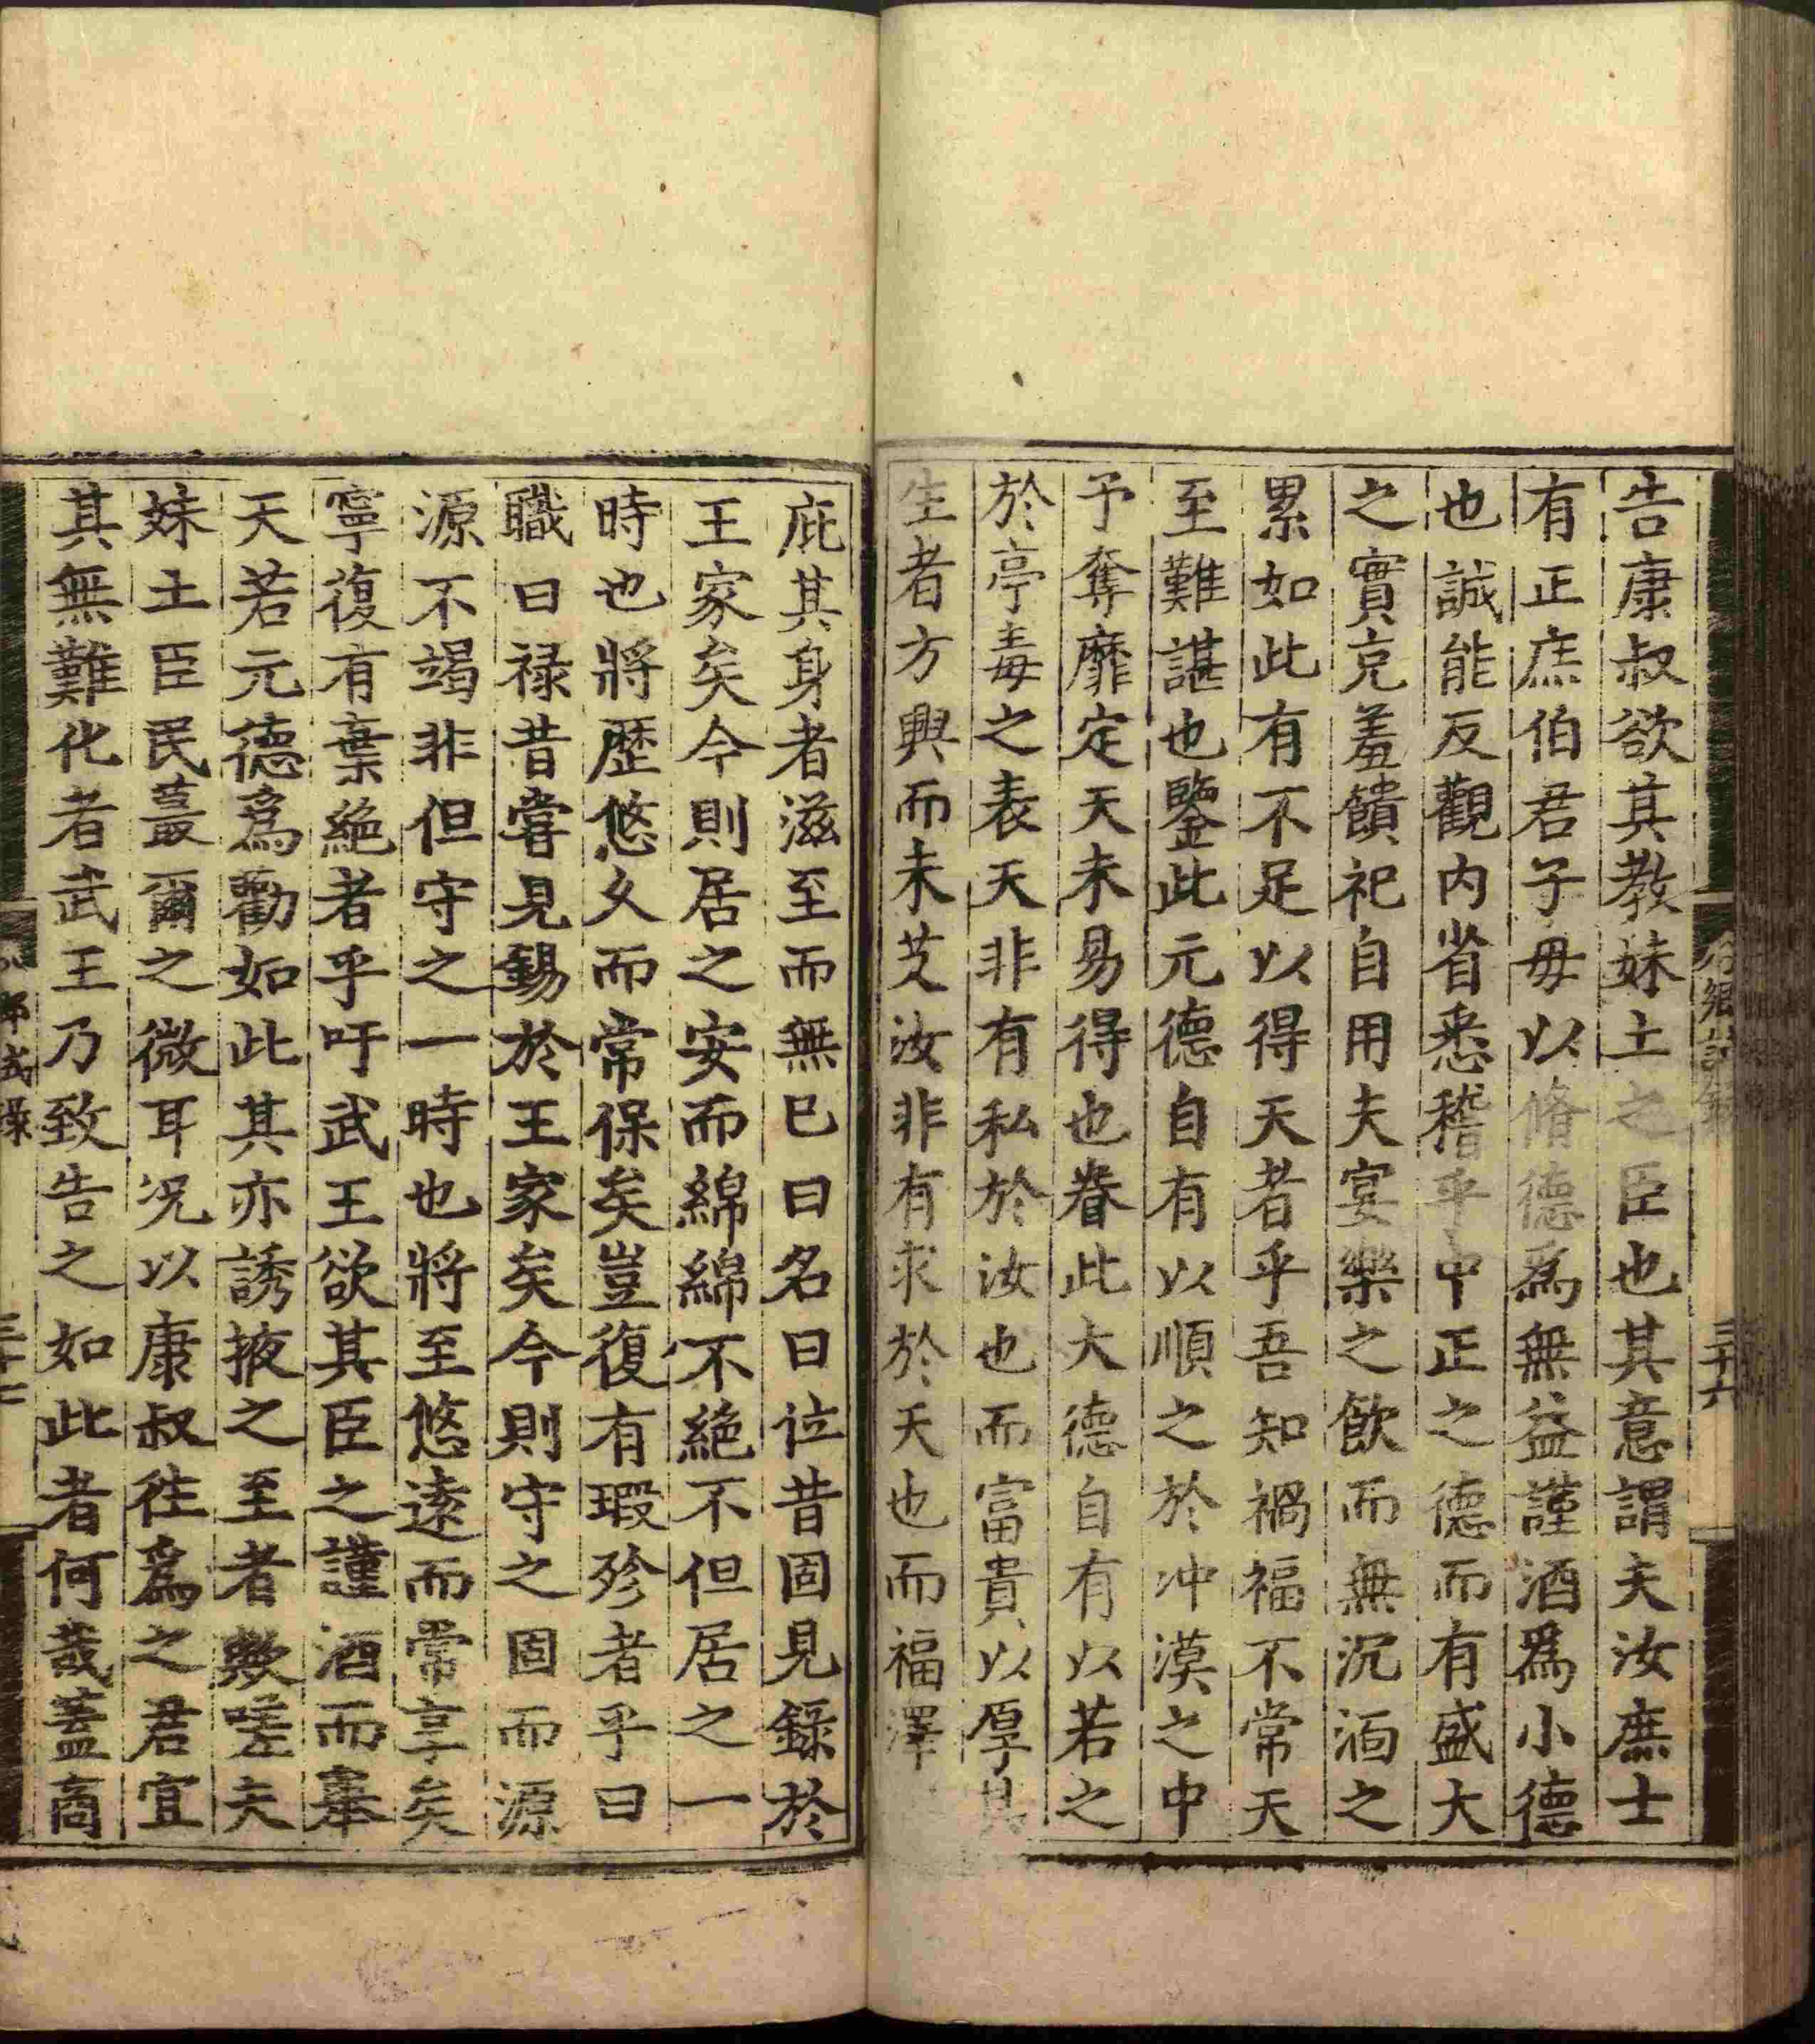 告康叔欲其教妹土之臣也其意謂夫汝庶士
有正庶伯君子毋以脩德爲無益謹酒爲小德
也誠能反觀內省悉稽乎中正之德而有盛大
之實克羞饋祀自用夫宴樂之飲而無沉湎之
累如此有不足以得天者乎吾知禍福不常天
至難諶也鑒此元德自有以順之於沖漠之中
予奪靡定天未易得也眷此大德自有以若之
於亭毒之表天非有私於汝也而富貴以厚其
生者方興而未艾汝非有求於天也而福澤
庇其身者滋至而無已曰名曰位昔固見錄於
王家矣今則居之安而綿綿不絕不但居之一
時也將歷悠久而常保矣豈復有瑕殄者乎曰
職曰祿昔嘗見錫於王家矣今則守之固而源
源不竭非但守之一時也將至悠遠而常享矣
寧復有棄絕者乎吁武王欲其臣之謹酒而舉
天若元德爲勸如此其亦誘掖之至者歟嗟夫
妹土臣民蕞爾之微耳況以康叔往爲之君宜
其無難化者武王乃致告之如此者何哉蓋商
三十六